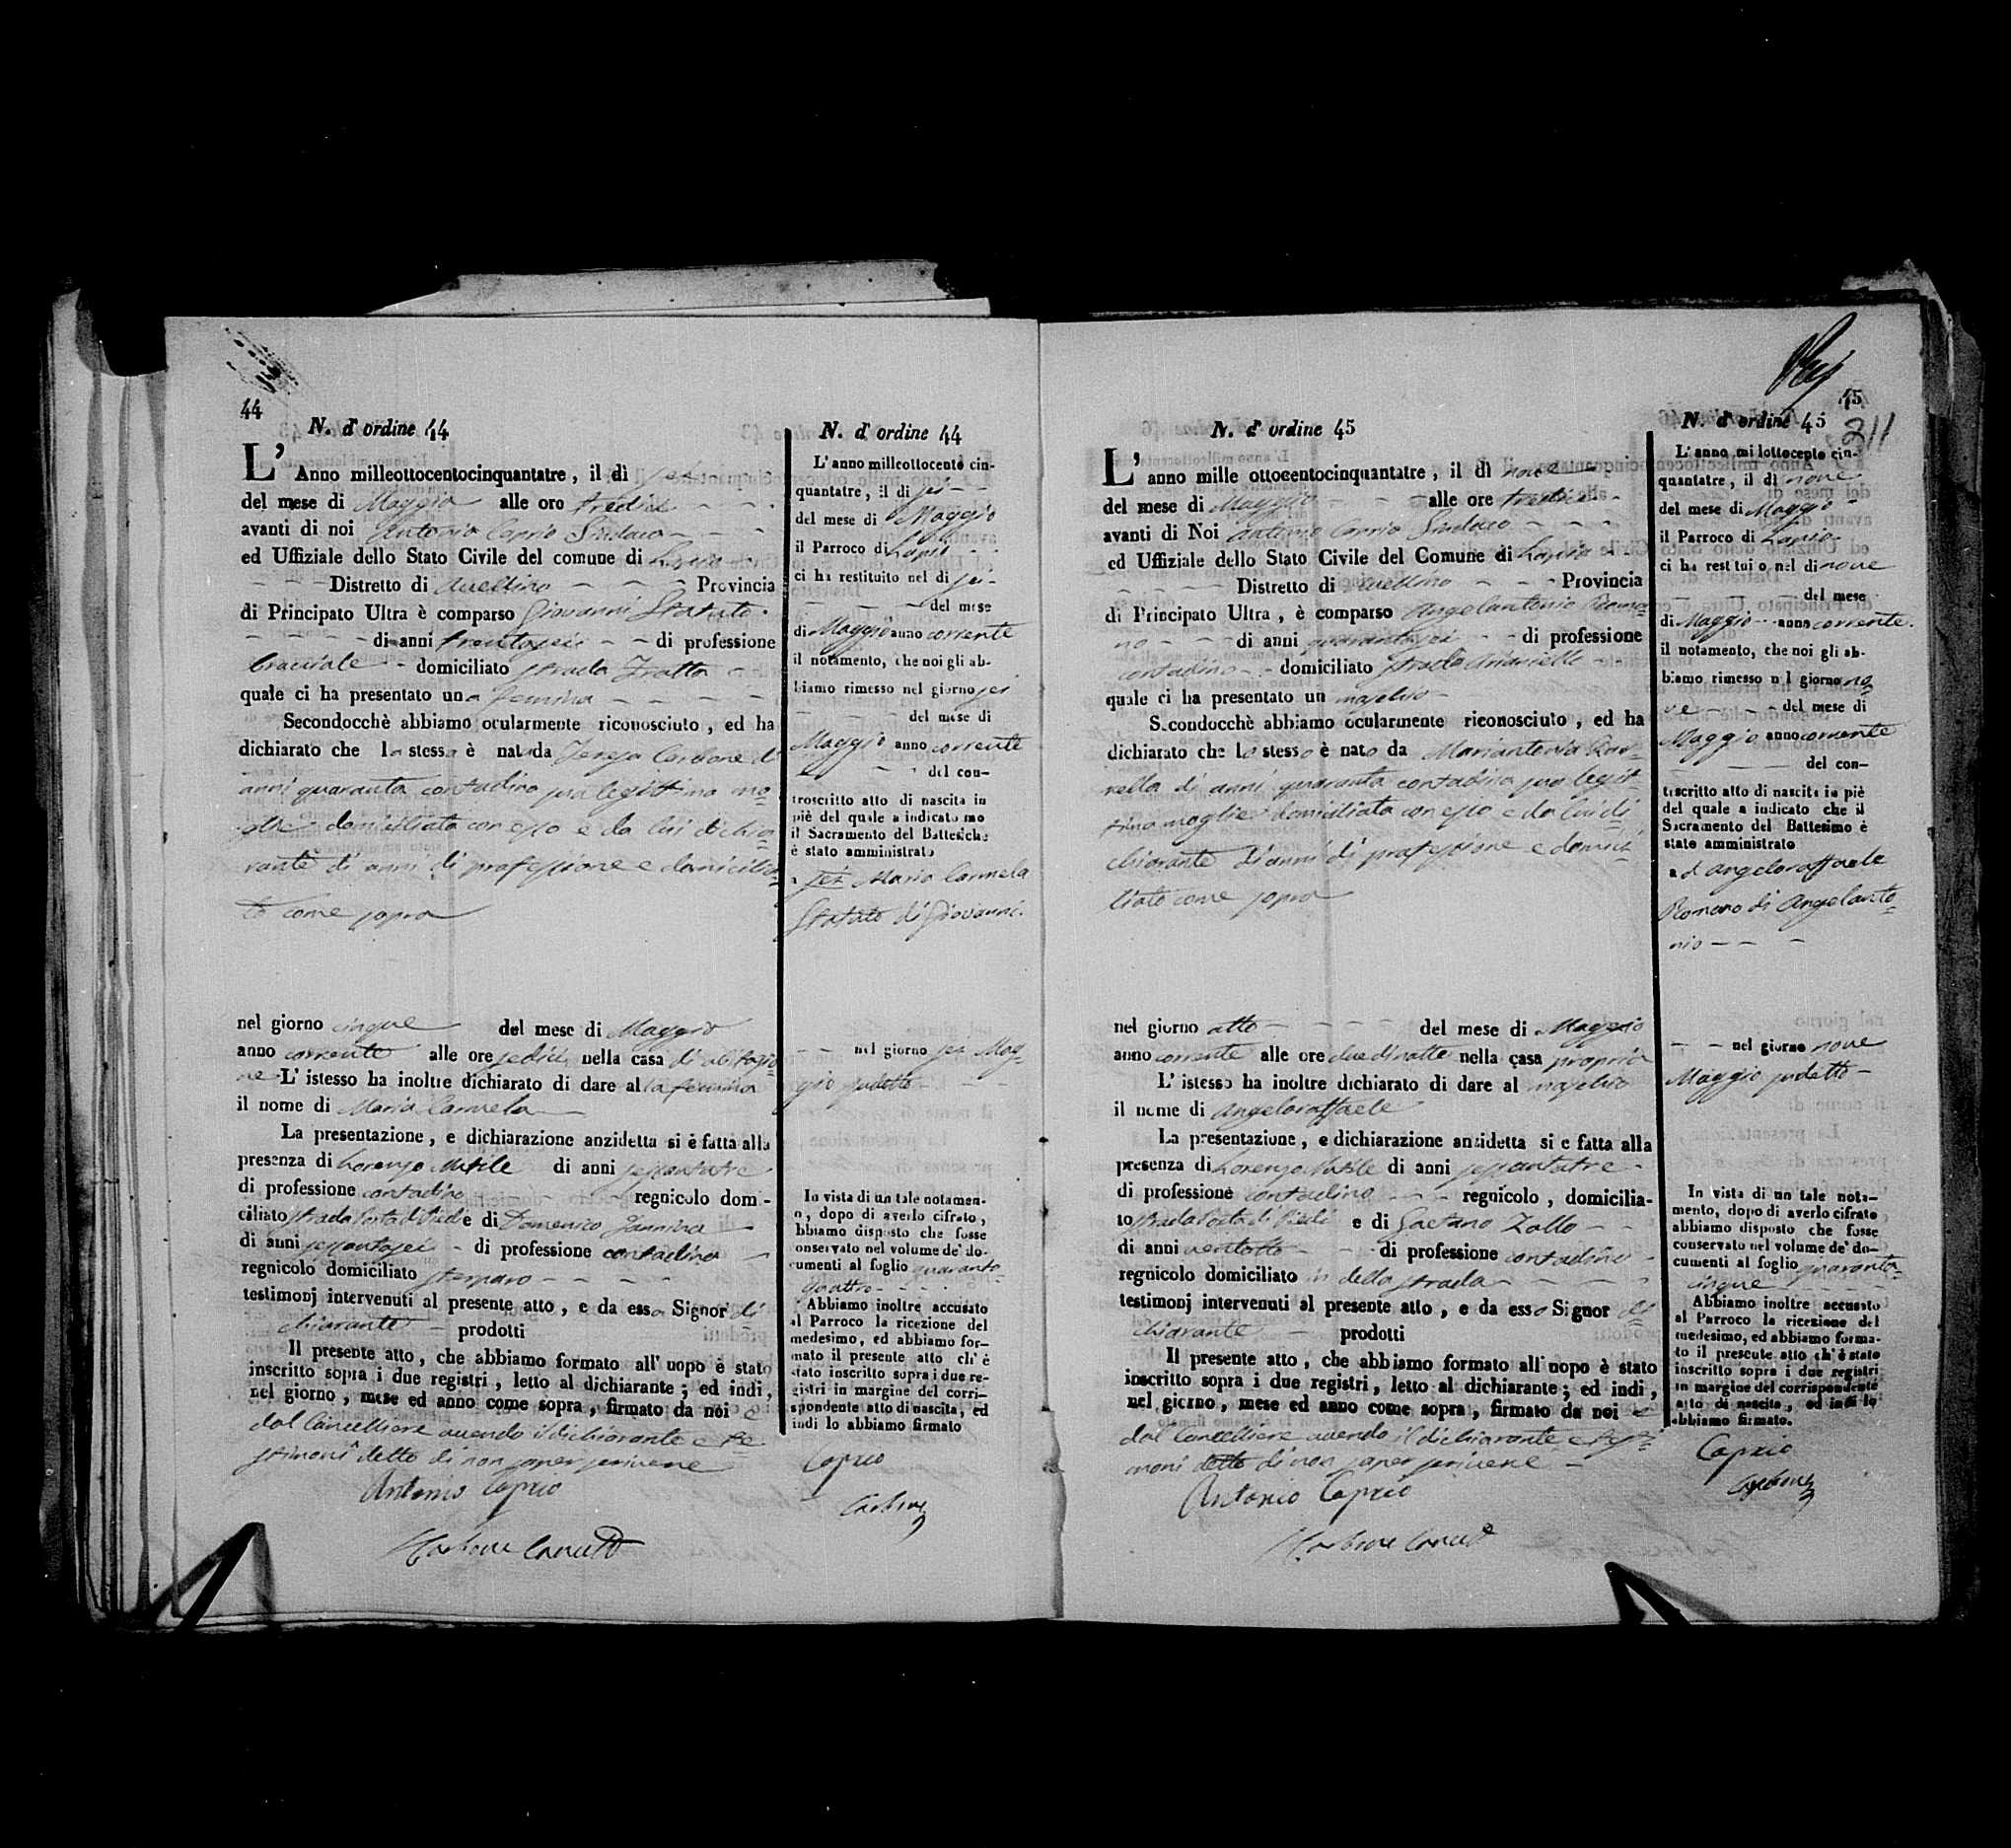 44
N. d' ordine 44
L' Anno milleottocentocinquantatre, il dì sei
del mese di Maggio alle oro tredici
avanti di noi Antonio Caprio Sindaco
ed Uffiziale dello Stato Civile del comune di Lapio
Distretto di Avellino Provincia
di Principato Ultra è comparso Giovanni Statuto
di anni trentasei di professione
bracciale domiciliato strada Tratta
quale ci ha presentato una femina
Secondocchè abbiamo ocularmente riconosciuto, ed ha
dichiarato che la stessa è nata da Teresa Carbone di
anni quaranta contadina sua legittima mo=
glie domiciliata con esso e da lui dichia=
rante di anni di professione e domicilia=
to come sopra
nel giorno cinque del mese di Maggio
anno corrente alle ore sedici nella casa di abitazio=
ne L' istesso ha inoltre dichiarato di dare alla femina
il nome di Maria Carmela
La presentazione, e dichiarazione anzidetta si è fatta alla
presenza di Lorenzo Musile di anni sessantatre
di professione contadino regnicolo dom-
ciliato strada Porta di Piedi e di Domenico Iannina
di anni sessantasei di professione contadino
regnicolo domiciliato
testimonj intervenuti al presente atto, e da esso Signor di
chiarante prodotti
Il presente atto, che abbiamo formato all' uopo è stato
inscritto sopra i due registri, letto al dichiarante; ed indi,
nel giorno, mese ed anno come sopra, firmato da noi e
dal Cancelliere avendo il dichiarante e te=
stimoni detto di non saper scrivere
Antonio Caprio
Carbone Canc.
N. d' ordine 44
L' anno milleottocento cin-
quantatre, il di sei
del mese di Maggio
il Parroco di Lapio
ci ha restituito nel di sei
del mese
di Maggio anno corrente
il notamento, che noi gli ab-
biamo rimesso nel giorno sei
del mese di
Maggio anno corrente
del con-
troscritto atto di nascita in
piè del quale a indicato mo
il Sacramento del Battesiche
è stato amministrato
a sei Maria Carmela
Statuto di Giovanni
nel giorno sei Mag=
gio sudetto
In vista di un tale notamen-
o, dopo di averlo cifrato,
bbiamo disposto che fosse
onservato nel volume de' do-
cumenti al foglio quaranta
quattro
Abbiamo inoltre accusato
al Parroco la ricezione del
medesimo, ed abbiamo for-
mato il presente atto ch' è
stato inscritto sopra i due re-
gistri in margine del corri-
spondente atto di nascita, ed
indi lo abbiamo firmato
Caprio
Carbone
45
211
N. d' ordine 45
L' anno mille ottocentocinquantatre, il dì nove
del mese di Maggio alle ore tredici
avanti di Noi Antonio Caprio Sindaco
ed Uffiziale dello Stato Civile del Comune di Lapio
Distretto di Avellino Provincia
di Principato Ultra, è comparso Angelantonio Roma=
no di anni quarantasei di professione
contadino domiciliato strada Arianiello
quale ci ha presentato un maschio
Secondocchè abbiamo ocularmente riconosciuto, ed ha
dichiarato che lo stesso è nato da Mariantonia
di anni quaranta contadina sua legit=
tima moglie domiciliata con esso e da lui di=
chiarante di anni di professione e domici=
liato come sopra
nel giorno otto del mese di Maggio
anno corrente alle ore due di notte nella casa propria
L' istesso ha inoltre dichiarato di dare al maschio
il nome di Angeloraffaele
La presentazione, e dichiarazione anzidetta si e fatta alla
presenza di Lorenzo Musile di anni sessantatre
di professione contadino regnicolo, domicilia-
to strada Porta di Piedi e di Gaetano Zollo
di anni ventotto di professione contadino
regnicolo domiciliato in detta strada
testimonj intervenuti al presente atto, e da esso Signor di
chiarante prodotti
Il presente atto, che abbiamo formato all' uopo è stato
inscritto sopra i due registri, letto al dichiarante; ed indi,
nel giorno, mese ed anno come sopra, firmato da noi e
dal Cancelliere avendo il dichiarante e testi=
moni detto di non saper scrivere
Antonio Caprio
Carbone Canc.
N. d' ordine 45
L' anno millottocento cin-
quantatre, il dì nove
del mese di Maggio
il Parroco di Lapio
ci ha restituio nel di nove
del mese
di Maggio anno corrente.
il notamento, che noi gli ab-
biamo rimesso nel giorno no=
ve del mese di
Maggio anno corrente
del con-
troscritto atto di nascita in piè
del quale a indicato che il
Sacramento del Battesimo è
stato amministrato
ad Angeloraffaele
Romano di Angelanto=
nio
nel giorno nove
Maggio sudetto
In vista di un tale nota-
mento, dopo di averlo cifrato
abbiamo disposto che fosse
conservato nel volume de' do-
cumenti al foglio quaranta=
cinque
Abbiamo inoltre accusato
al Parroco la ricezione del
medesimo, ed abbiamo forma-
to il presente atto ch' è stato
inscritto sopra i due registri
in margine del corrispondente
atto di nascita, ed indi lo
abbiamo firmato.
Caprio
Carbone